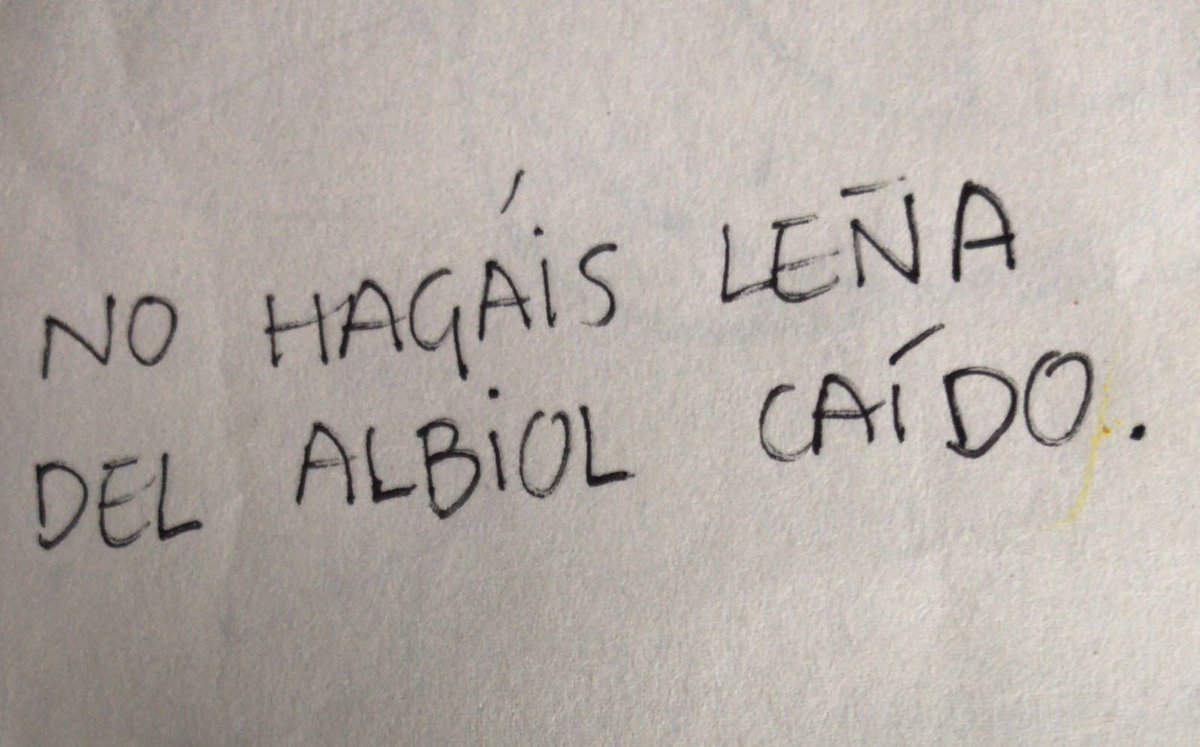 NO HAGÁIS LEÑA
DEL ALBIOL CAÍDO.